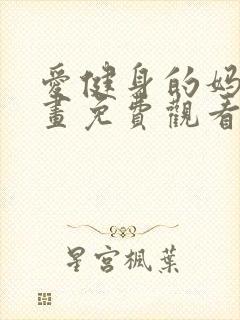 愛健身的妈
畫免費觀看
星宮楓葉